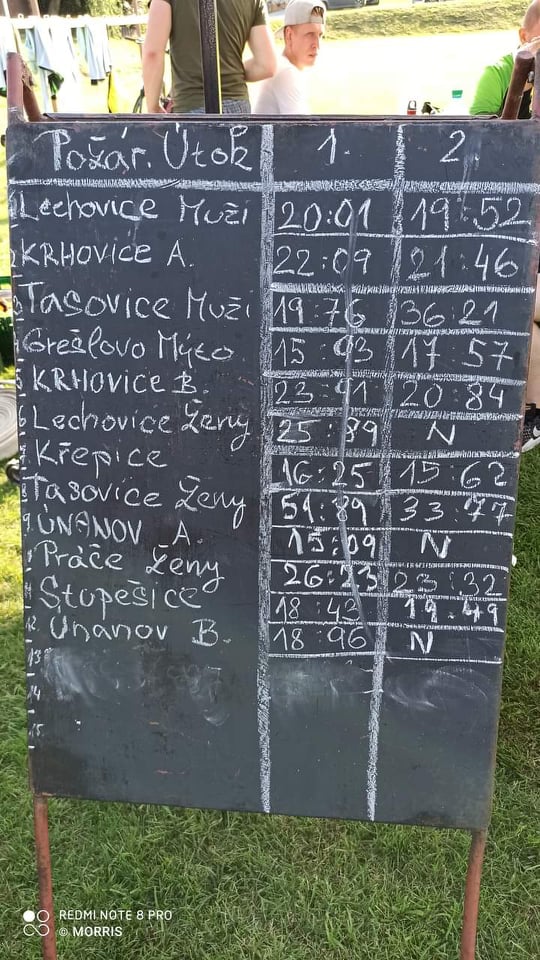 Požár. Útok 1. 2.
1 Lechovice Muži 20:01 19:52
2 KRHOVICE A. 22:09 21:46
3 Tasovice Muži 19:76 36:21
Grešlovo Mýto 15:93 17:57
5 KRHOVICE B. 23:91 20:84
6 Lechovice Ženy 25:89 N
7 Křepice 16:25 15:62
8 Tasovice Ženy 51:89 33:77
9 ÚNANOV A. 15:09 N
Práče Ženy 26:23 23:32
11 Stupešice 18:43
12 Únanov B. 18:96 N
13
14
15
REDMI NOTE 8 PRO
© MORRIS